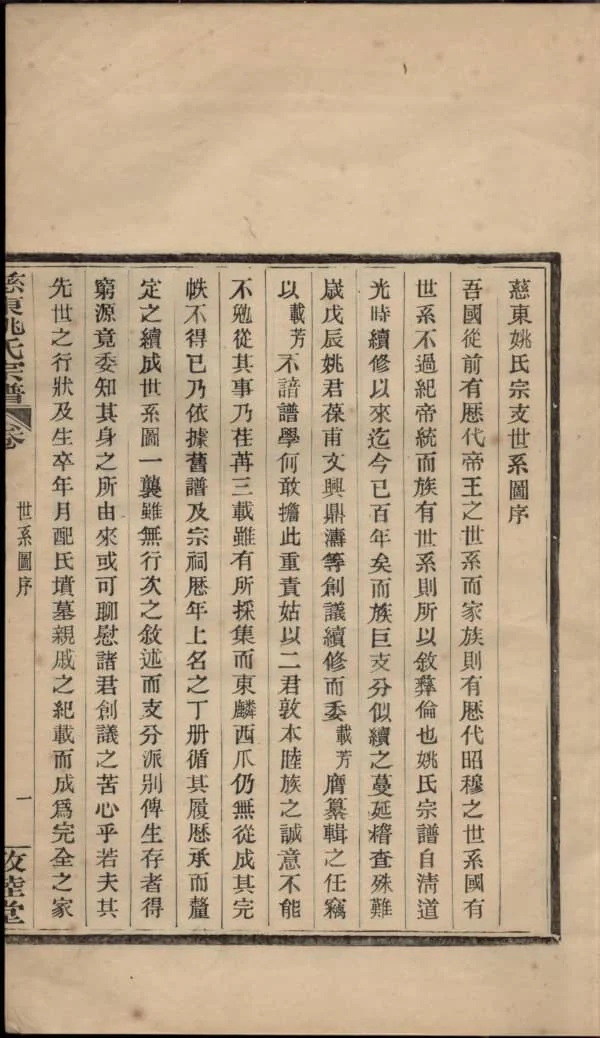 慈東姚氏宗支世系圖序
吾國從前有歷代帝王之世系而家族則有歷代昭穆之世系國有
世系不過紀帝統而族有世系則所以敘彝倫也姚氏宗譜自淸道
光時續修以來迄今已百年矣而族巨支分似續之蔓延稽查殊難
歲戊辰姚君葆甫文興鼎濤等創議續修而委載芳膺纂輯之任竊
以載芳不諳譜學何敢擔此重責姑以二君敦本睦族之誠意不能
不勉從其事乃荏苒三載雖有所採集而東麟西爪仍無從成其完
帙不得已乃依據舊譜及宗祠歷年上名之丁册循其履歷承而釐
定之續成世系圖一襲雖無行次之敘述而支分派別俾生存者得
窮源竟委知其身之所由來或可聊慰諸君創議之苦心乎若夫其
先世之行狀及生卒年月配氏墳墓親戚之紀載而成爲完全之家
慈東姚氏宗譜 卷 世系圖序 一 敦睦堂